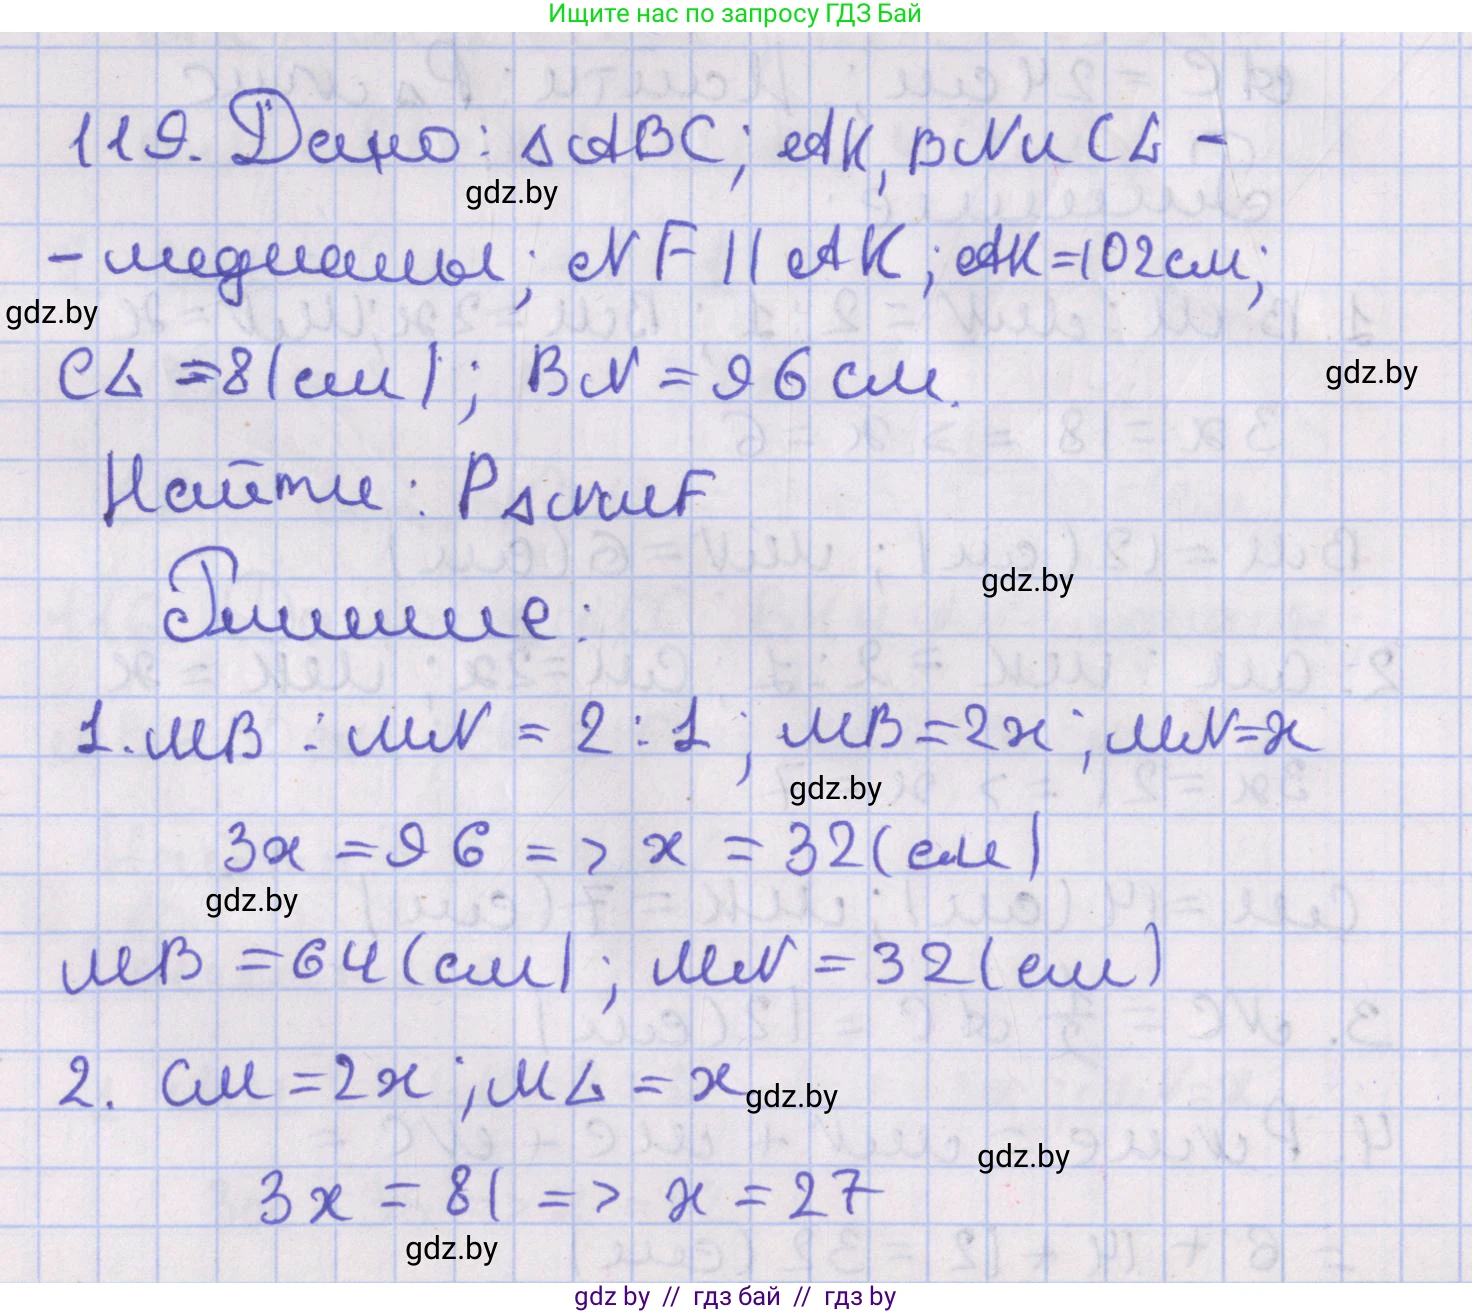 Ищите нас по запросу ГДЗ Бай
119. Дано: △ABC; AK, BN и CL -
gdz.by
- медианы; NF || AK; AK=102см;
gdz.by
CL = 81(см); BN = 96 см.
gdz.by
Найти: P△NMF
gdz.by
Решение:
1. MB : MN = 2 : 1; MB = 2x; MN = x
gdz.by
3x = 96 => x = 32 (см)
gdz.by
MB = 64 (см); MN = 32 (см)
2. CM = 2x; ML = x
gdz.by
gdz.by
3x = 81 => x = 27
gdz.by
gdz by // гдз бай // гдз by